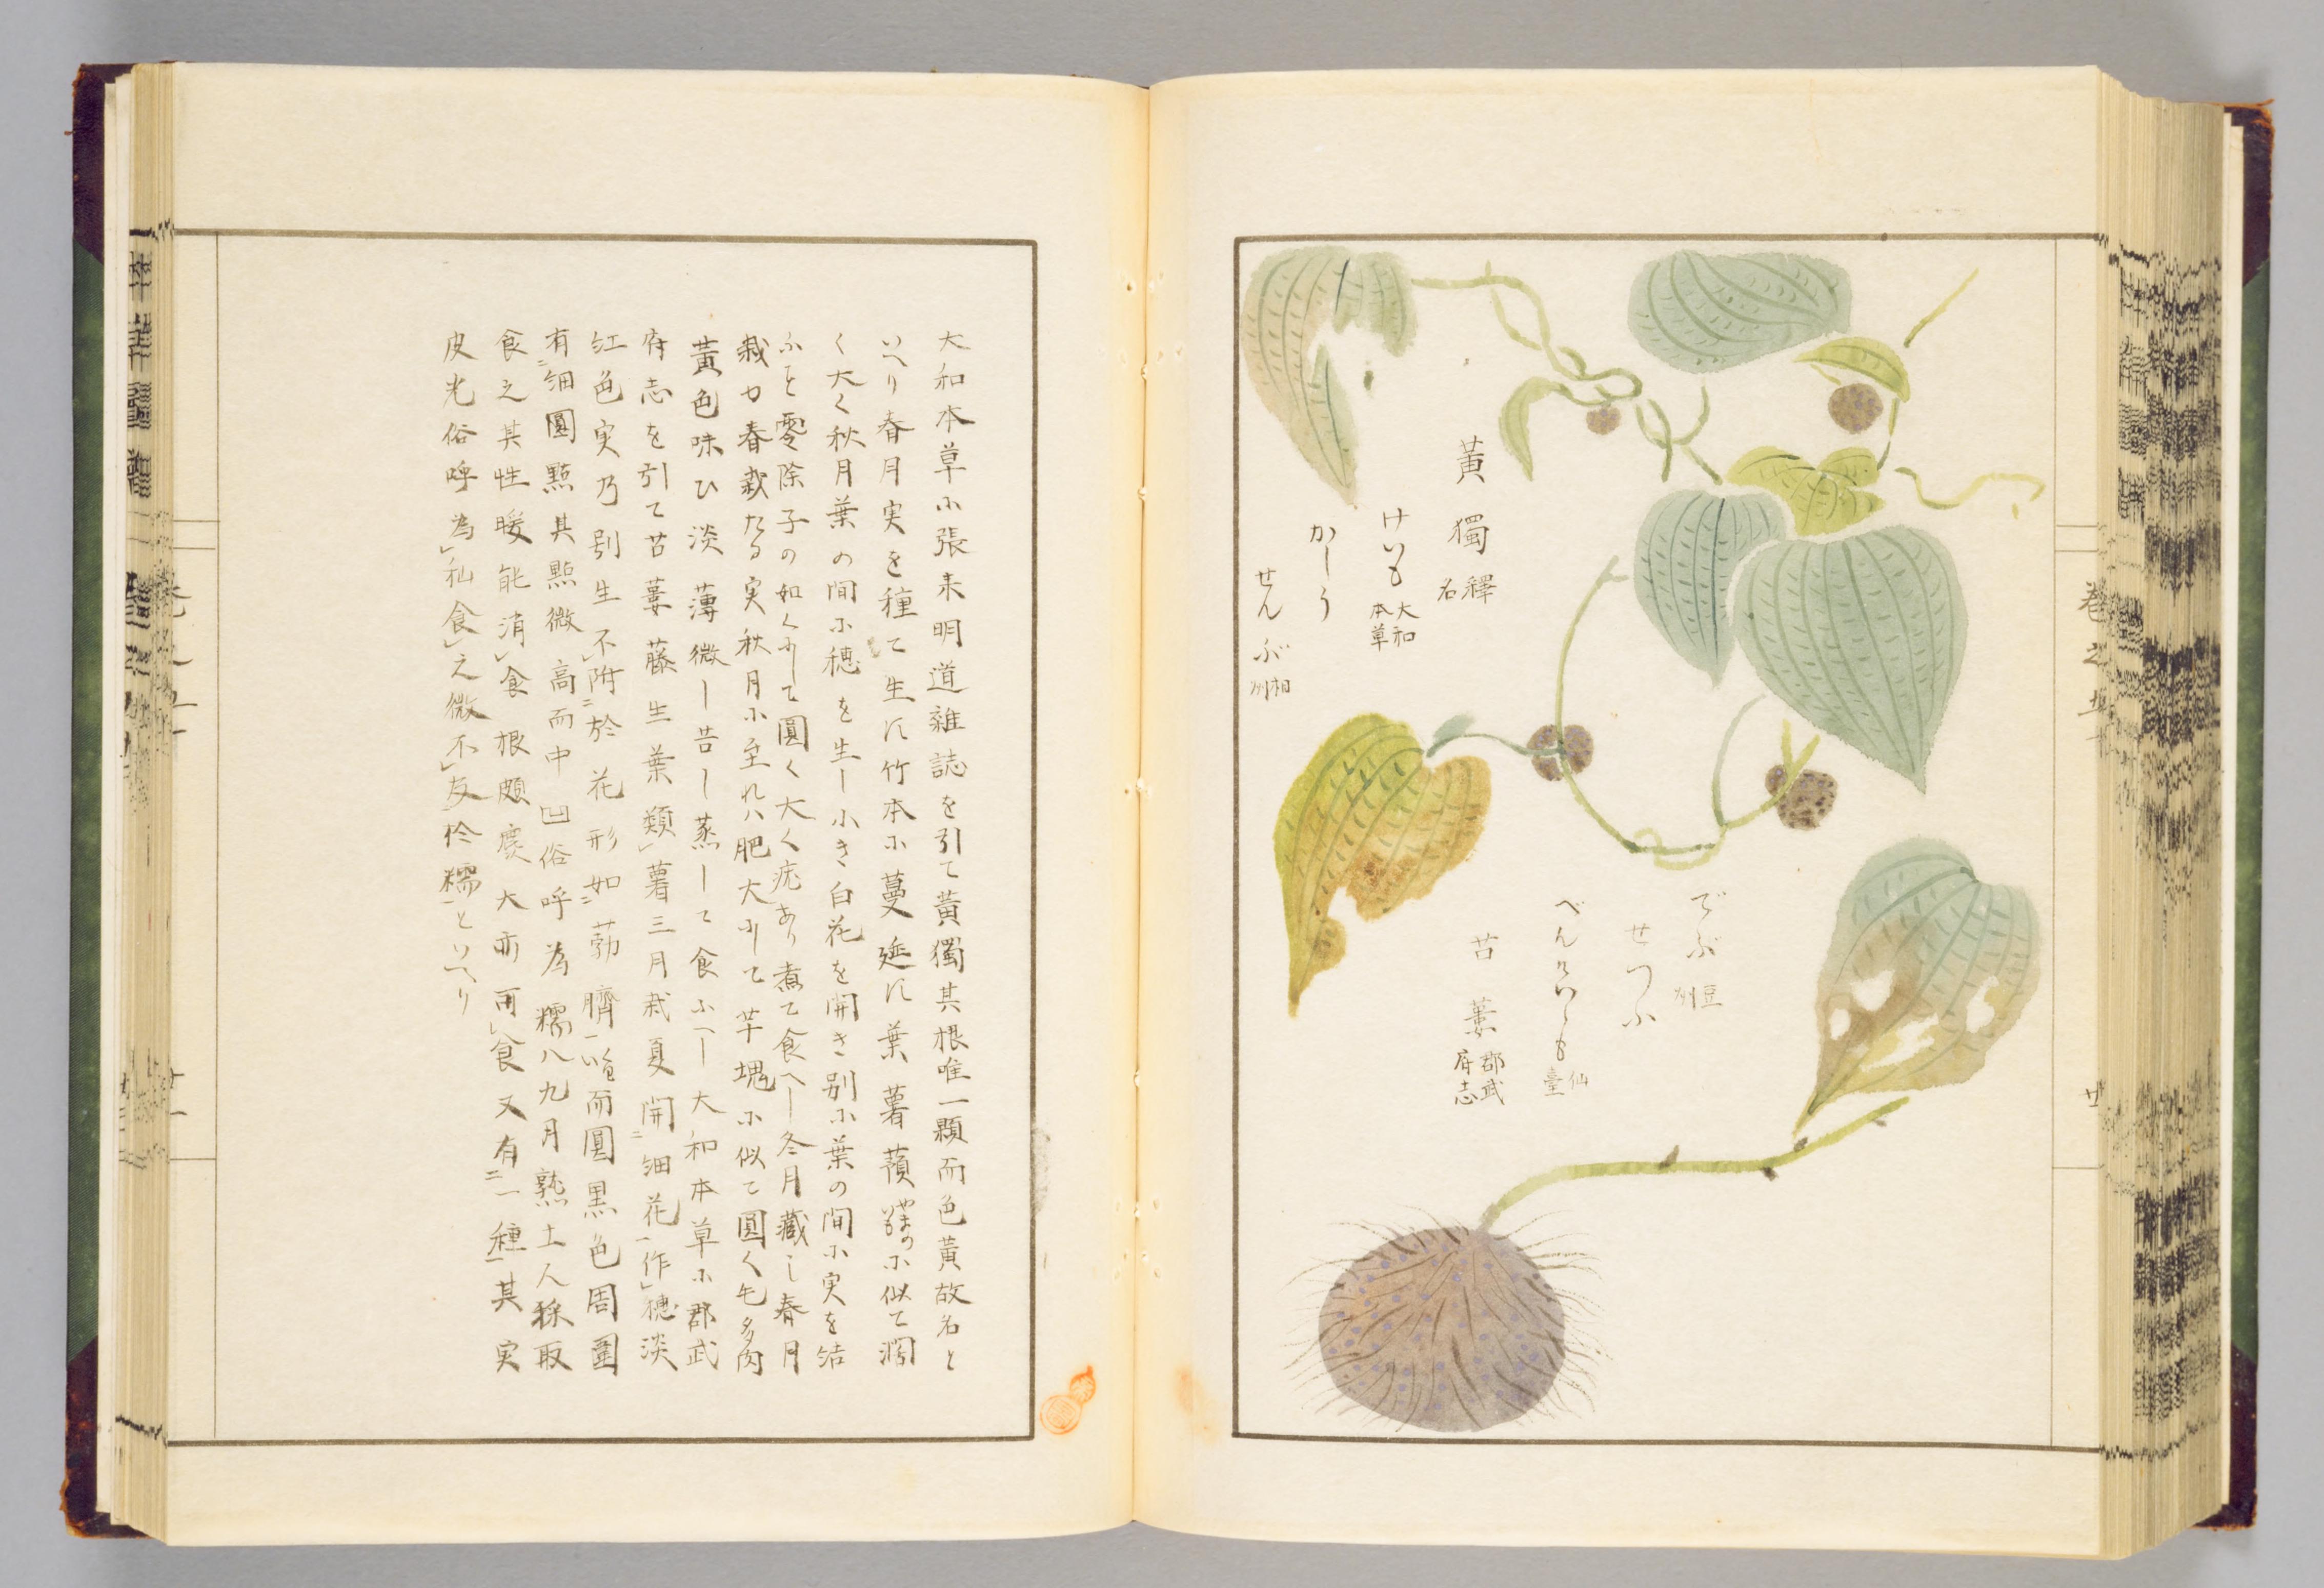 黃獨 釋名
けいも 大和本草
かしう
せんぶ 相州
でぶ 豆州
せつふ
べんけいいも 仙臺
苦蔞 郡武府志
大和本草小張耒明道雜誌を引て黃獨其根唯一顆而色黃故名と
いへり春月実を種て生に竹木小蔓延に葉薯蕷やまのいも小似て濶
く大く秋月葉の間小穂を生し小き白花を開き別小葉の間小実を結
ふと零除子の如くにして圓く大く疣あり煮て食へし冬月藏し春月
栽ゆ春栽たる実秋月小至れハ肥大にして芋塊小似て圓く毛多肉
黃色味ひ淡薄微し苦し蒸して食ふへし大和本草小郡武
府志を引て苦蔞藤生葉類薯三月栽夏開細花作穂淡
紅色実乃別生不附於花形如葧臍 而圓黒色周圍
有細圓點其點微高而中凹俗呼為糯八九月熟土人採取
食之其性暖能消食根頗 大亦可食又有一種其実
皮光俗呼為秈食之微不及於糯といへり
卷之五
廿